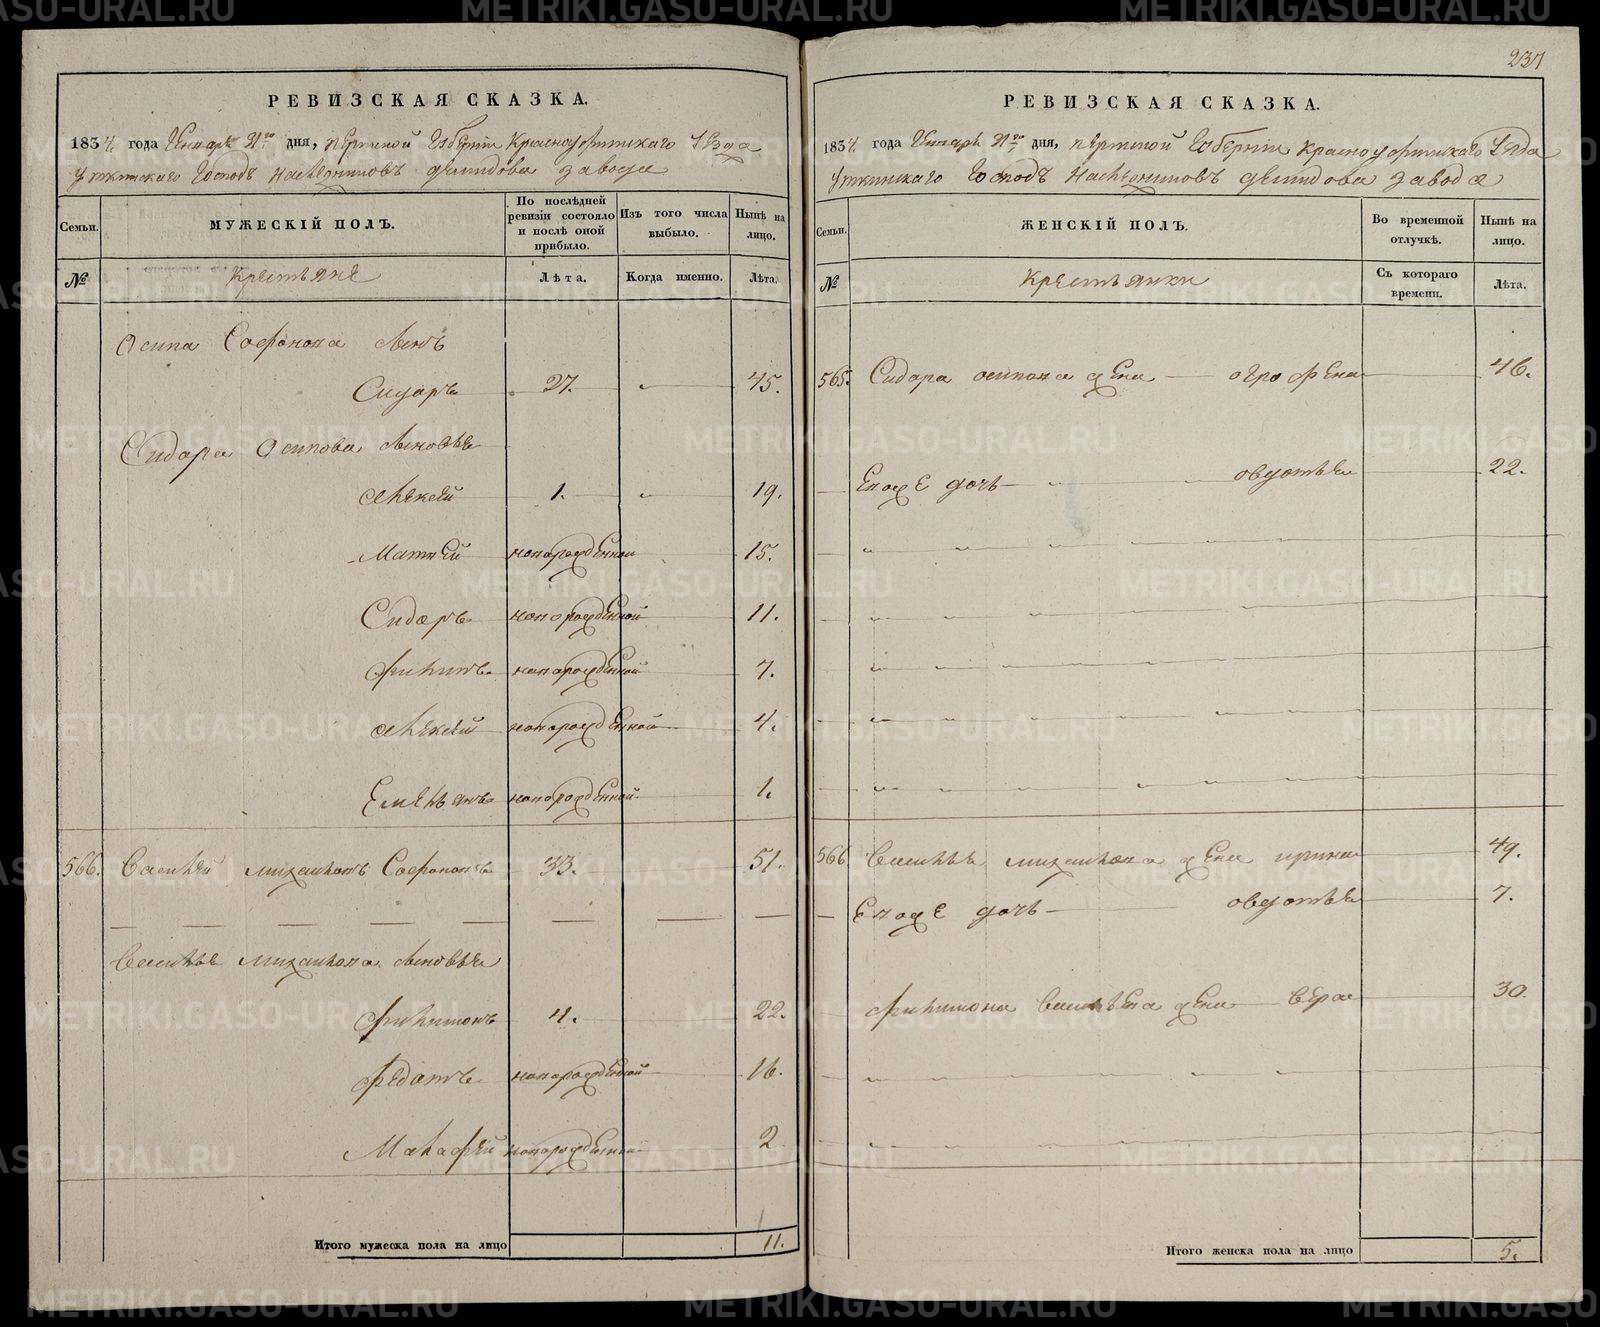 237
РЕВИЗСКАЯ СКАЗКА.
1834 года Генваря дня, Пермской Губернiи Красноуфимскаго Уѣзда
Уткинскаго Господъ Наслѣдниковъ Демидова завода
Семьи. МУЖЕСКIЙ ПОЛЪ. По послѣдней ревизiи состояло и послѣ оной прибыло. Изъ того числа выбыло. Нынѣ на лицо.
№ Крестьяне Лѣта. Когда именно. Лѣта.
Осипа Софонова сынъ
Сидаръ 27. 45.
Сидара Осипова сыновья
Алѣксей 1. 19.
Матвей новорожденной 15.
Сидаръ новорожденной 11.
Филипъ новорожденной 7.
Алѣксей новорожденной 4.
Емельянъ новорожденной 1.
566. Василей Михаиловъ Софоновъ 33. 51.
Василья Михаилова сыновья
Филимонъ 4. 22.
Федотъ новорожденной 16.
Малафей новорожденной 2
Итого мужеска пола на лицо 11.
РЕВИЗСКАЯ СКАЗКА.
1834 года Генваря дня, Пермской Губернiи Красноуфимскаго Уѣзда
Уткинскаго Господъ Наслѣдниковъ Демидова завода
Семьи. ЖЕНСКIЙ ПОЛЪ. Во временной отлучкѣ. Нынѣ на лицо.
№ Крестьянки Съ котораго времени. Лѣта.
565. Сидара Осипова жена Огрофена 46.
Евоже дочь Овдотья 22.
566 Василья Михаилова жена Ирина 49.
Евоже дочь Овдотья 7.
Филимона Васильева жена Вера 30.
Итого женска пола на лицо 5.
METRIKI.GASO-URAL.RU